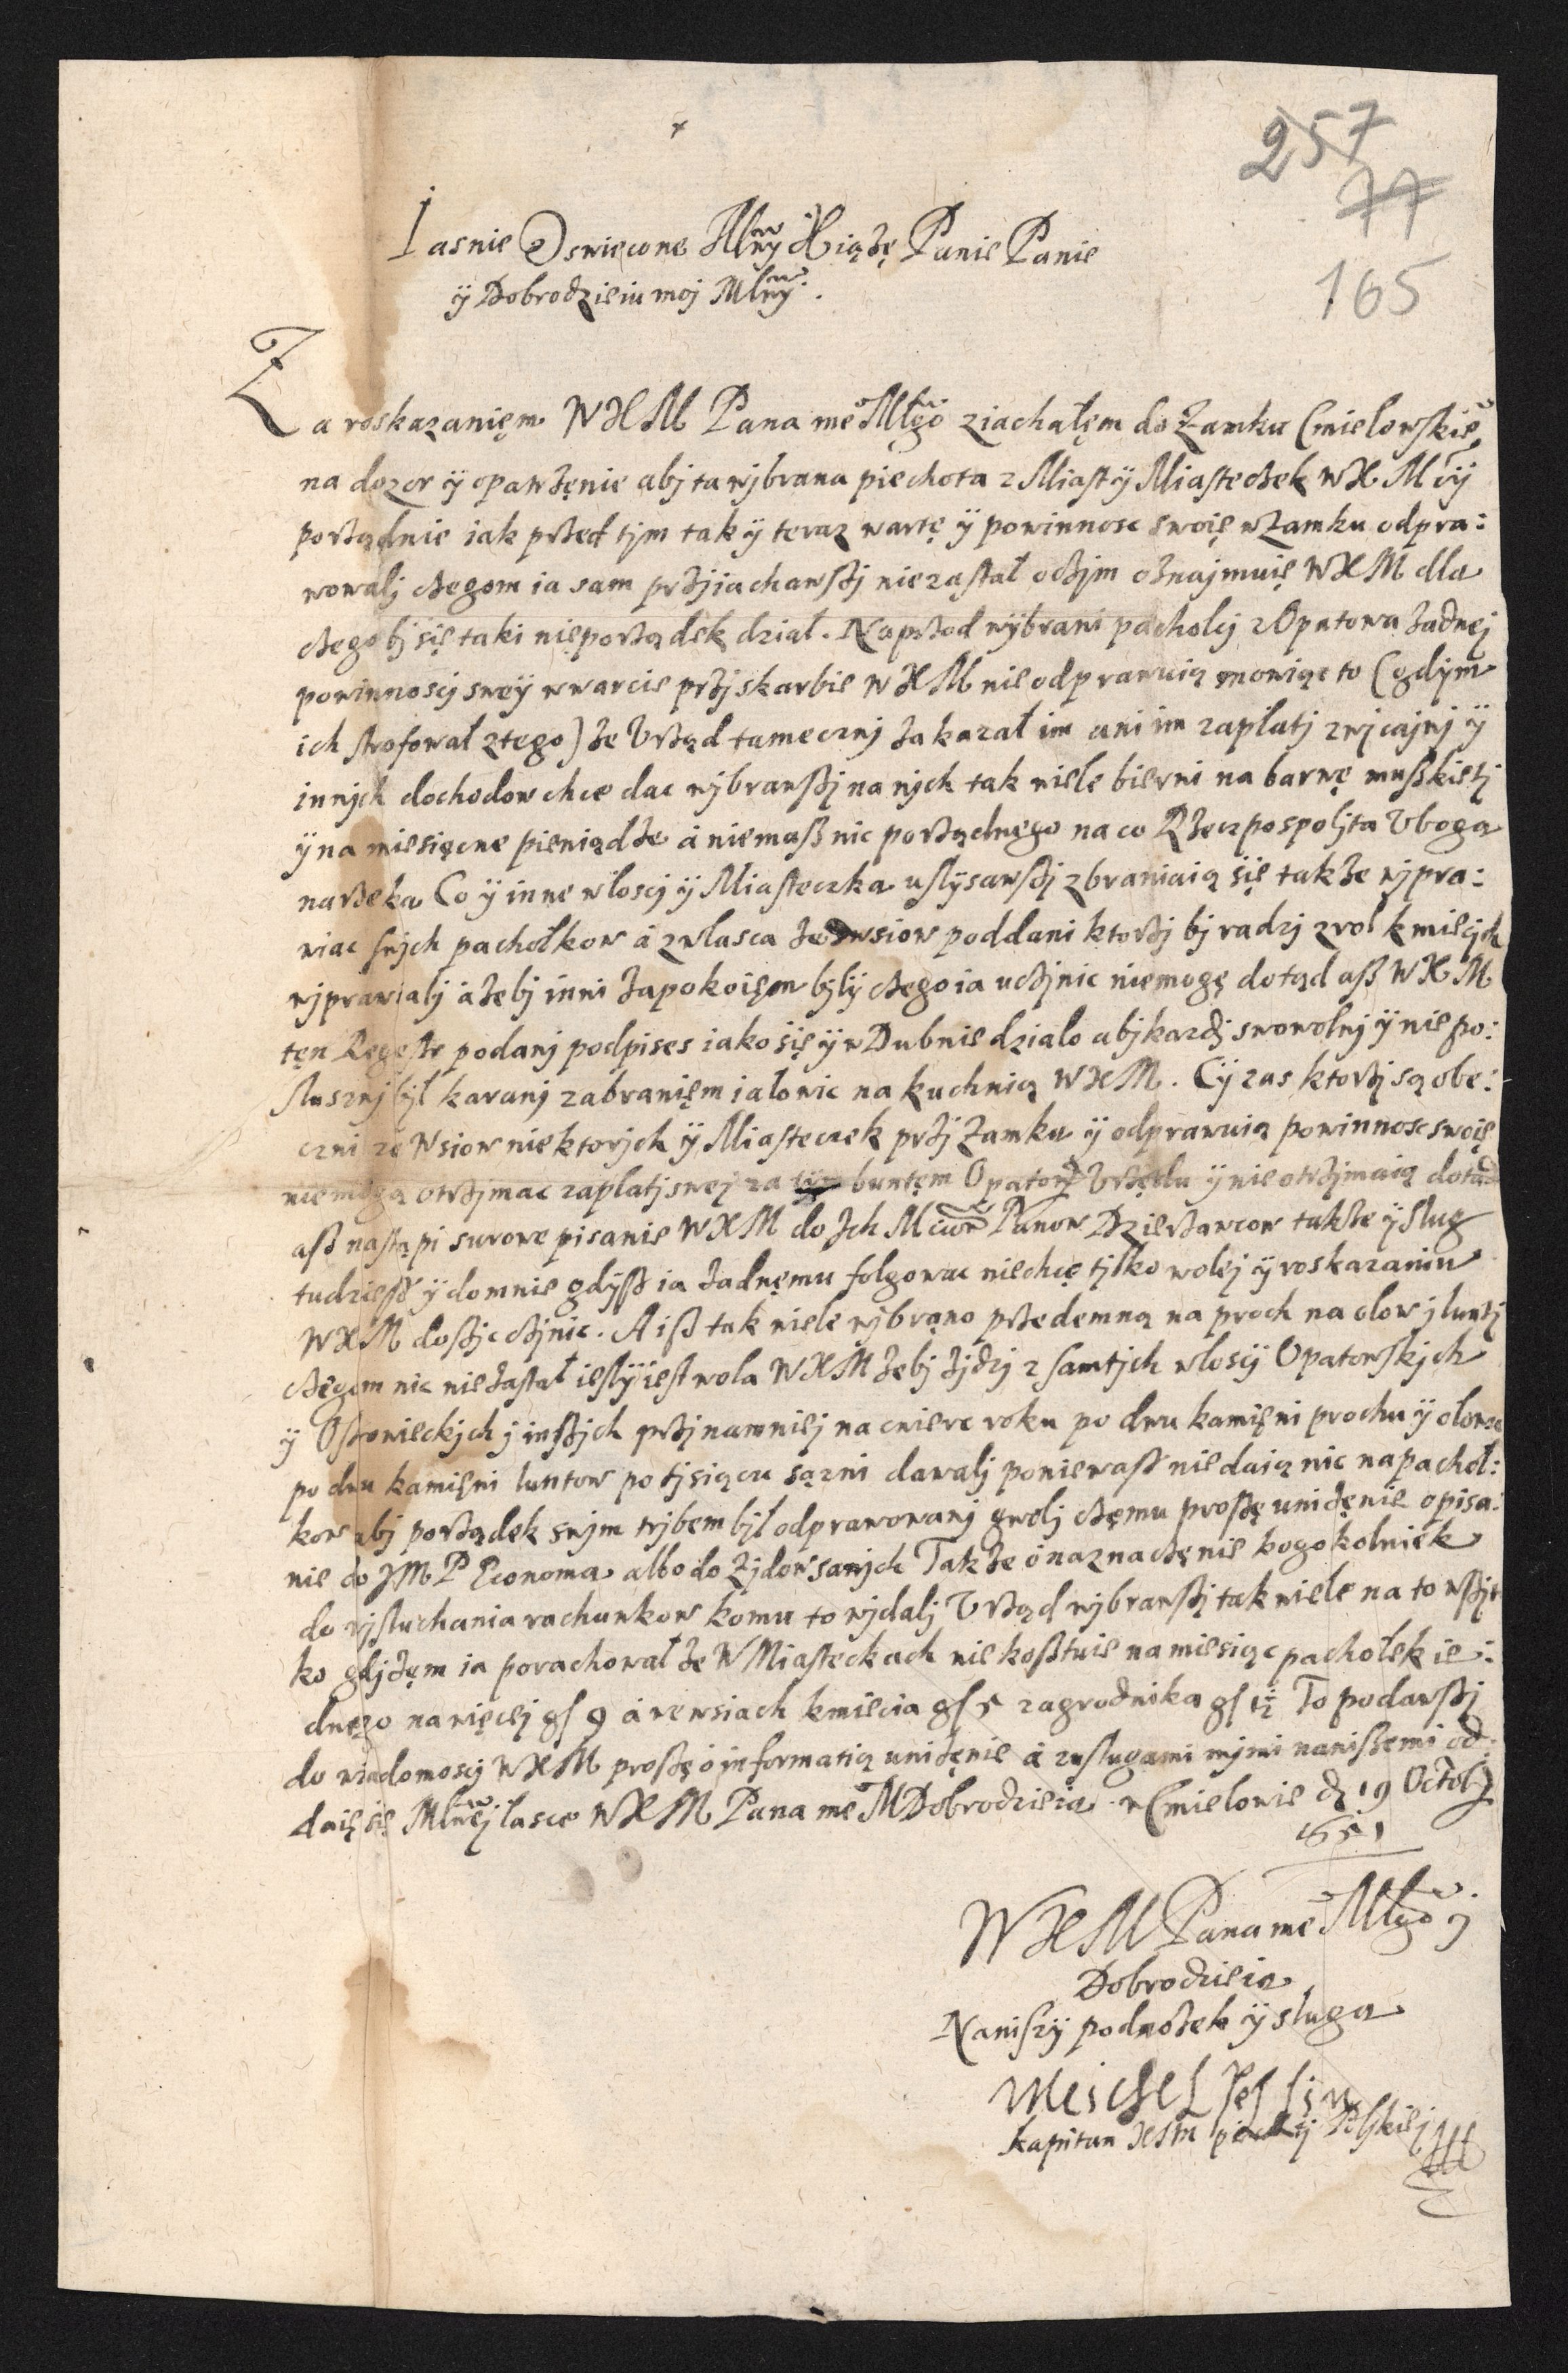 257
77
165
Iasnie Oswięcone Mlwy Xiążę Panie Panie
ÿ Dobrodzieiu moj Mlwy.
Za roskazanięm WXM Pana me° Młgo ziachałęm do Zamku Cmielowskie°
na dozor ÿ opatrżęnie abj ta wjbrana piechota z Miast ÿ Miasteczek WXM cÿ
porżądnie iak przed tjm tak ÿ teraz wartę ÿ powinnosc swoię w Zamku odpra:
wowalj czegom ia sam przjiachawszj nie zastał oczjm oznajmuię WXM dla
czego bj się taki nieporżądek dział. Naprzod wÿbrani pacholcj z Opatowa żadnej
powinnoscj sweÿ w warcie przj skarbie WXM nie odprawuią mowiąc to (gdÿm
ich strofował z tego) że Vrżąd tamecznj zakazał im ani im zapłatj zwjcajnj ÿ
innjch dochodow chce dac wjbrawszj na njch tak wiele bierni na barwę muszkietj
ÿ na miesięcne pieniądze á niemasz nic porżądnego na co Rżeczpospoljta Vboga
narżeka Co ÿ inne wloscj ÿ Miasteczka uslÿsawszj zbraniaią się także wjpra:
wiac swjch pachołkow á zwlasca ze wsiow poddani ktorżj bj radzj z rol kmiecjch
wjprawialj á żebj inni zapokoięm bÿlÿ czego ia uczjnic niemogę dotąd asz WXM
tęn Regestr podanj podpises iako się ÿ w Dubnie dzialo abj kazdj swowolnj ÿ niepo:
slusznj bÿł karanj zabranięm iałowic na kuchnią WXM. Cÿ zas ktorżj są obe:
czni ze Wsiow niektorjch ÿ Miasteczek przj Zamku ÿ odprawuią powinnosc swoię
niemogą otrżjmac zapłatj swej za buntęm Opatow Vrżędu ÿ nie otrżjmaią dotąd
asz nastąpi surowe pisanie WXM do Ich Mciow Panow Dzierżawcow także ÿ Slug
tudziesz ÿ do mnie gdÿsz ia żadnęmu folgowac niechcę tjlko wolej ÿ roskazaniu
WXM dosÿc czjnic. A isz tak wiele wjbrąno przedemną na proch na olow j luntj
czegom nic nie zastał ieslÿ iest wola WXM żebj żjdzj z samtjch wloscÿ Opatowskjch
ÿ Ostowieckjch j inszjch przjnamniej na cwierc roku po dwu kamięni prochu ÿ olowu
po dwu kamięni luntow po tjsiącu sązni dawalj poniewasz nie daią nic na pachoł:
kow abj porżądek swjm trjbem bjł odprawowanj gwolj cżęmu proszę uniżęnie o pisa:
nie do JMP Economa albo do Zjdow samjch Także ó naznaczęnie kogokolwiek
do wjsluchania rachunkow komu to wjdalj Vrżąd wjbrawszj tak wiele na to wszjt
ko gdjżęm ia porachował że W Miasteckach nie kosztuie na miesiąc pachołek ie:
dnęgo nawięcej gs 9 á we wsiach kmiecia gs 5 zagrodnika gs 1½ To podawszj
do wiadomoscj WXM proszę ó informatią uniżęnie á zuslugami mÿmi naniszemi od:
daię się Mlwej lasce WXM Pana me° M Dobrodzieia w Cmielowie d 19 Octobr
1651
WXM Pana me° Młgo j
Dobrodzieia
Naniszÿ podnożek ÿ sluga
Meichel
kapitan XSM piechotj Polskiej